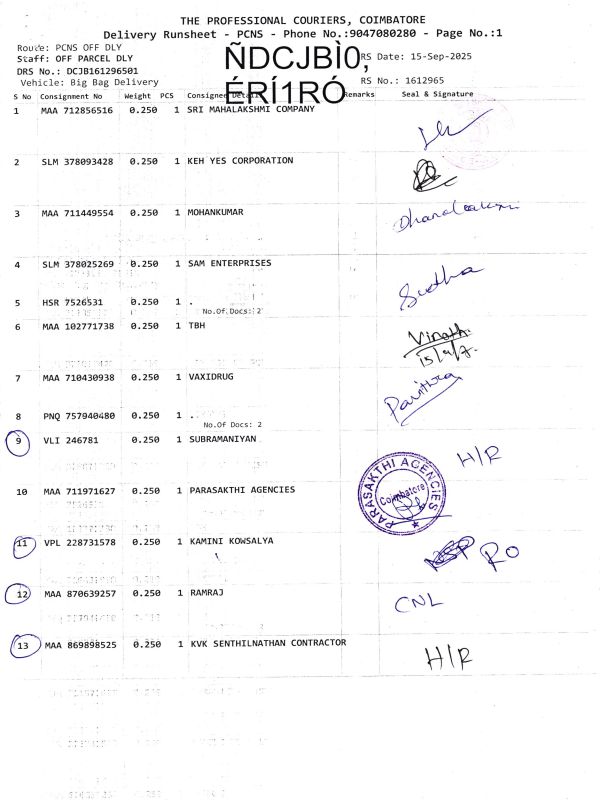 THE PROFESSIONAL COURIERS, COIMBATORE
Delivery Runsheet - PCNS - Phone No.:9047080280 - Page No.:1
Route: PCNS OFF DLY
Staff: OFF PARCEL DLY
DRS No.: DCJB161296501
Vehicle: Big Bag Delivery
ÑDCJBÌ0,
ÉRÍ1RÓ
RS Date: 15-Sep-2025
RS No.: 1612965
S No Consignment No Weight PCS Consignee Details Remarks Seal & Signature
1 MAA 712856516 0.250 1 SRI MAHALAKSHMI COMPANY
2 SLM 378093428 0.250 1 KEH YES CORPORATION
3 MAA 711449554 0.250 1 MOHANKUMAR
4 SLM 378025269 0.250 1 SAM ENTERPRISES
Sudha
5 HSR 7526531 0.250 1 .
No.Of Docs: 2
6 MAA 102771738 0.250 1 TBH
Vinoth
15/9/7.
7 MAA 710430938 0.250 1 VAXIDRUG
Pavithra
8 PNQ 757940480 0.250 1 .
No.Of Docs: 2
9 VLI 246781 0.250 1 SUBRAMANIYAN
H/R
10 MAA 711971627 0.250 1 PARASAKTHI AGENCIES
PARASAKTHI AGENCIES
Coimbatore
11 VPL 228731578 0.250 1 KAMINI KOWSALYA
RO
12 MAA 870639257 0.250 1 RAMRAJ
CNL
13 MAA 869898525 0.250 1 KVK SENTHILNATHAN CONTRACTOR
H/R